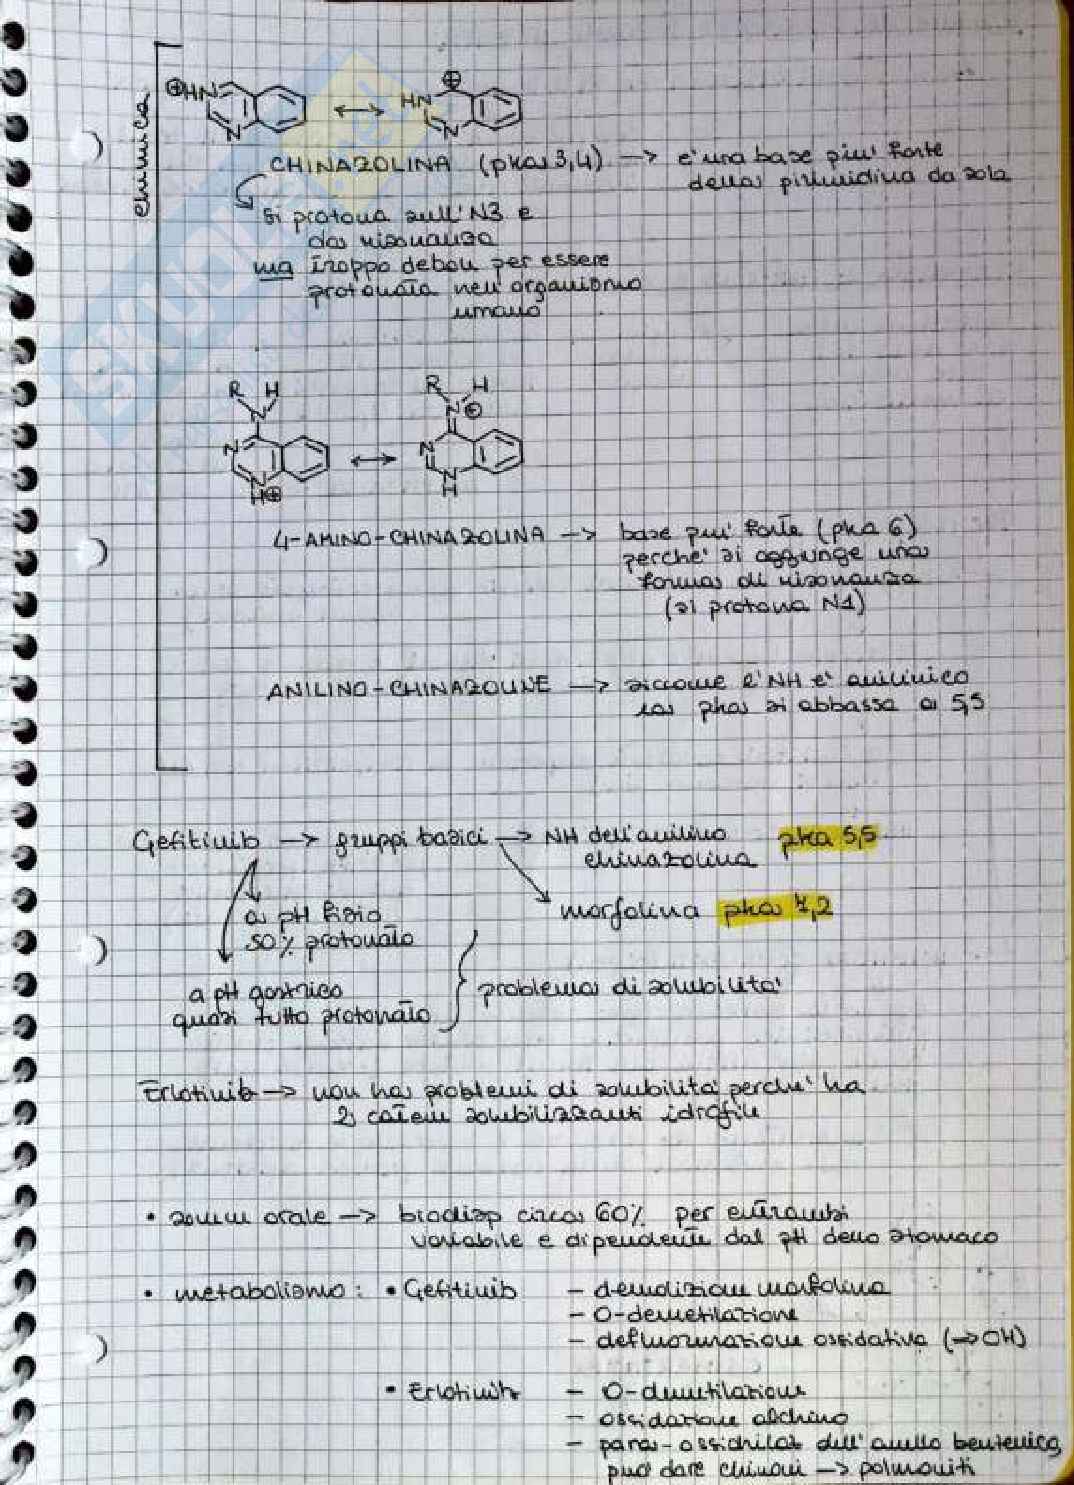 chimica
⊕HN N ↔ HN ⊕ N
CHINAZOLINA (pka 3,4) → e' una base piu' forte
della pirimidina da sola
si protona sull'N3 e
da risonanza
ma troppo debole per essere
protonata nell'organismo
umano
R H R H
N N⊕
N N
NH⊕ ↔ N H
4-AMINO-CHINAZOLINA → base piu' forte (pka 6)
perche' si aggiunge una
forma di risonanza
(si protona N1)
ANILINO-CHINAZOLINE → siccome l'NH e' anilinico
la pka si abbassa a 5,5
Gefitinib → gruppi basici → NH dell'anilino pka 5,5
chinazolina
morfolina pka 7,2
a pH fisio
50% protonato
a pH gastrico
quasi tutto protonato
problema di solubilita'
Erlotinib → non ha problemi di solubilita' perche' ha
2 catene solubilizzanti idrofile
• somm orale → biodisp circa 60% per entrambi
variabile e dipendente dal pH dello stomaco
• metabolismo: • Gefitinib - demolizione morfolina
- O-demetilazione
- defluorurazione ossidativa (→OH)
• Erlotinib - O-demetilazione
- ossidazione alchino
- para-ossidrilaz dell'anello benzenico,
puo' dare chinoni → polmoniti
SKUOLA.net